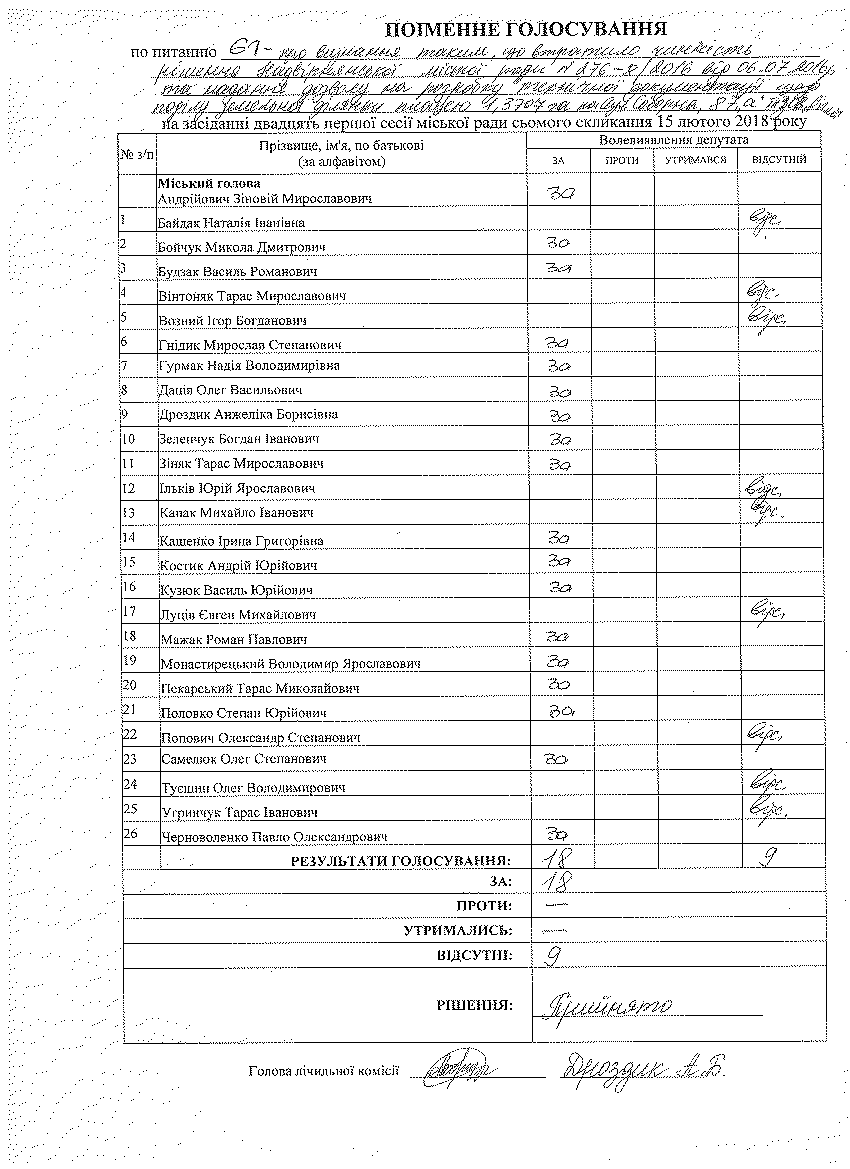 ПОІМЕННЕ ГОЛОСУВАННЯ
по питанню 61- про визнання таким, що втратило чинність
рішення Надвірнянської міської ради №276-8/2016 від 06.07.2016р.
та надання дозволу на розробку технічної документації щодо
поділу земельної ділянки площею 4,3707 га на вул. Соборна, 87,а
на засіданні двадцять першої сесії міської ради сьомого скликання 15 лютого 2018 року
№ з/п Прізвище, ім'я, по батькові (за алфавітом) Волевиявлення депутата
ЗА ПРОТИ УТРИМАВСЯ ВІДСУТНІЙ
Міський голова
Андрійович Зіновій Мирославович за
1 Байдак Наталія Іванівна відс.
2 Бойчук Микола Дмитрович за
3 Будзак Василь Романович за
4 Вінтоняк Тарас Мирославович відс.
5 Возний Ігор Богданович відс.
6 Гнідик Мирослав Степанович за
7 Гурмак Надія Володимирівна за
8 Дація Олег Васильович за
9 Дроздик Анжеліка Борисівна за
10 Зеленчук Богдан Іванович за
11 Зіняк Тарас Мирославович за
12 Ільків Юрій Ярославович відс.
13 Капак Михайло Іванович відс.
14 Кащенко Ірина Григорівна за
15 Костик Андрій Юрійович за
16 Кузюк Василь Юрійович за
17 Луців Євген Михайлович відс.
18 Мажак Роман Павлович за
19 Монастирецький Володимир Ярославович за
20 Пекарський Тарас Миколайович за
21 Половко Степан Юрійович за
22 Попович Олександр Степанович відс.
23 Самелюк Олег Степанович за
24 Туєшин Олег Володимирович відс
25 Угринчук Тарас Іванович відс.
26 Черноволенко Павло Олександрович за
РЕЗУЛЬТАТИ ГОЛОСУВАННЯ: 18 9
ЗА: 18
ПРОТИ: —
УТРИМАЛИСЬ: —
ВІДСУТНІ: 9
РІШЕННЯ: Прийнято
Голова лічильної комісії Дроздик А.Б.